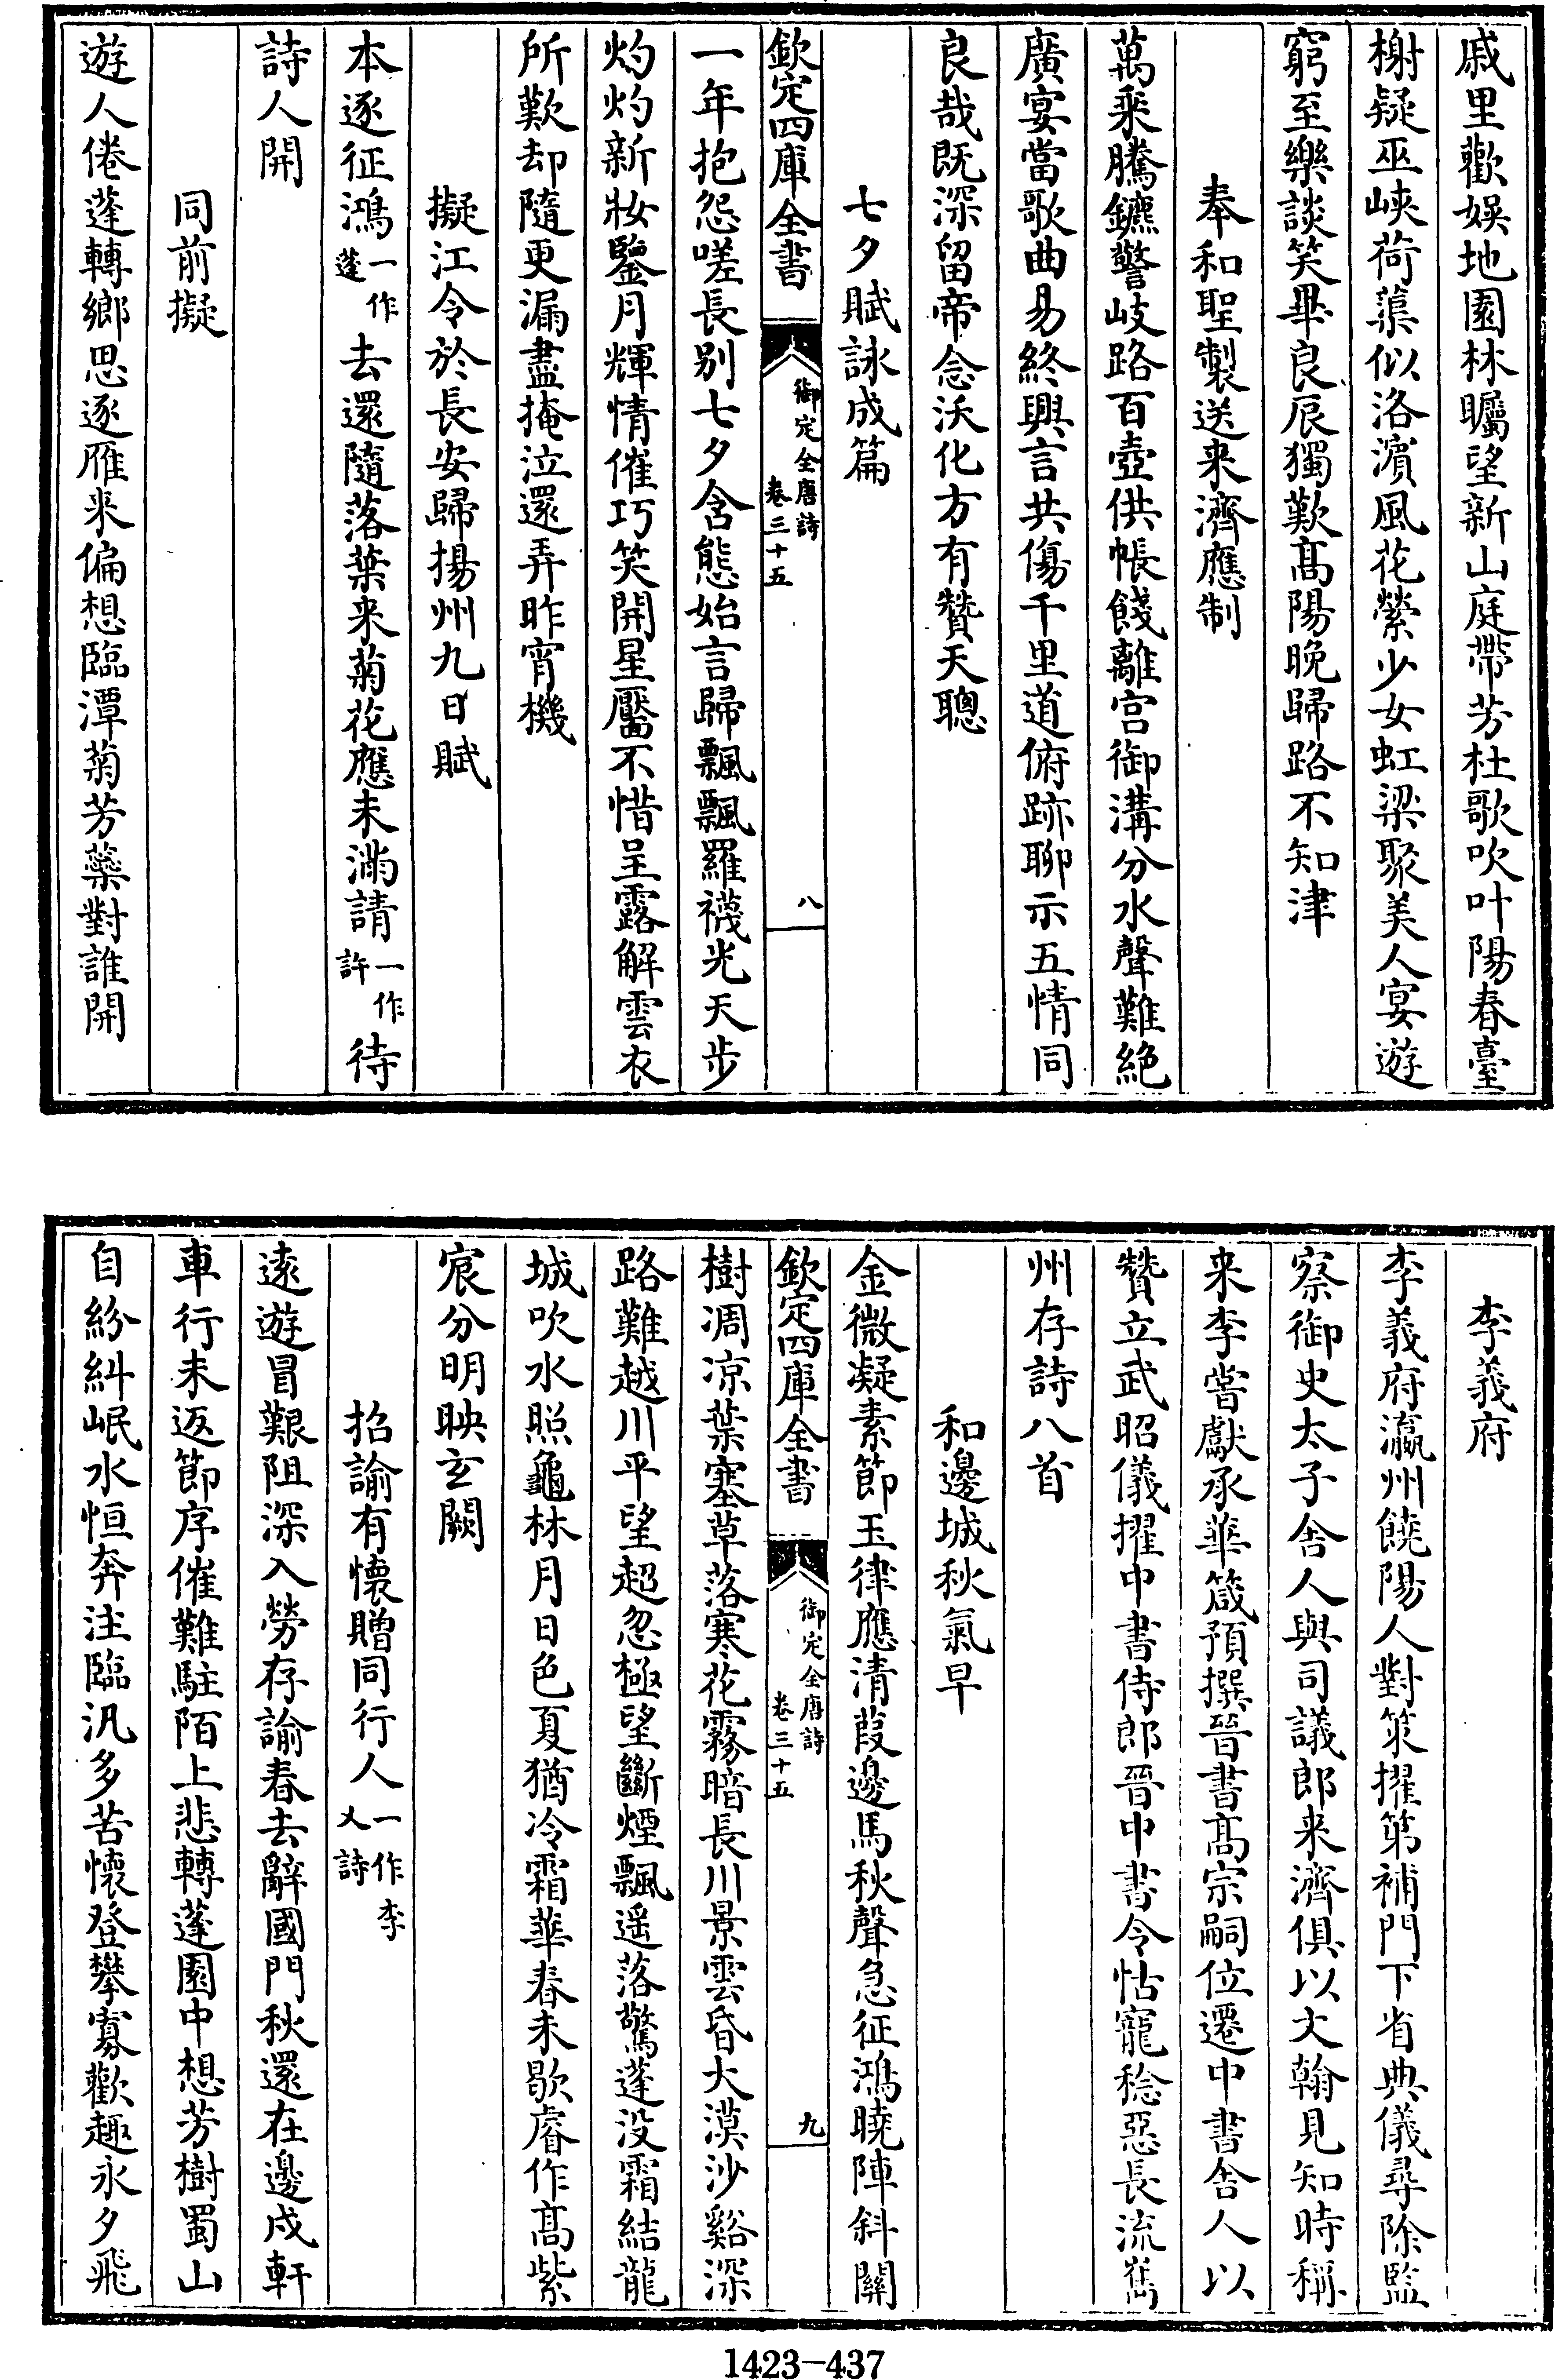 戚里歡娛地園林矚望新山庭帶芳杜歌吹叶陽春臺
榭疑巫峽荷蕖似洛濱風花縈少女虹梁聚美人宴遊
窮至樂談笑畢良辰獨歎髙陽晚歸路不知津
奉和聖製送来濟應制
萬乗騰鑣警岐路百壺供帳餞離宫御溝分水聲難絶
廣宴當歌曲易終興言共傷千里道俯跡聊示五情同
良哉既深留帝念沃化方有贊天聰
七夕賦詠成篇
欽定四庫全書
御定全唐詩
卷三十五
八
一年抱怨嗟長别七夕含態始言歸飄飄羅襪光天步
灼灼新妝鑒月輝情催巧笑開星靨不惜呈露解雲衣
所歎却隨更漏盡掩泣還弄昨宵機
擬江令於長安歸揚州九日賦
本逐征鴻一作蓬去還隨落葉来菊花應未滿請一作許待
詩人開
同前擬
遊人倦蓬轉鄉思逐雁来偏想臨潭菊芳蘂對誰開
李義府
李義府瀛州饒陽人對策擢第補門下省典儀尋除監
察御史太子舍人與司議郎来濟俱以文翰見知時稱
来李嘗獻承華箴預撰晉書髙宗嗣位遷中書舍人以
贊立武昭儀擢中書侍郎晉中書令怙寵稔惡長流嶲
州存詩八首
和邊城秋氣早
金微凝素節玉律應清葭邊馬秋聲急征鴻曉陣斜關
欽定四庫全書
御定全唐詩
卷三十五
九
樹凋凉葉塞草落寒花霧暗長川景雲昏大漠沙谿深
路難越川平望超忽極望斷煙飄遥落驚蓬没霜結龍
城吹水照龜林月日色夏猶冷霜華春未歇睿作髙紫
宸分明映玄闕
招諭有懷贈同行人一作李乂詩
遠遊冒艱阻深入勞存諭春去辭國門秋還在邊戍軒
車行未返節序催難駐陌上悲轉蓬園中想芳樹蜀山
自紛糾岷水恒奔注臨汎多苦懷登攀寡歡趣永夕飛
1423-437